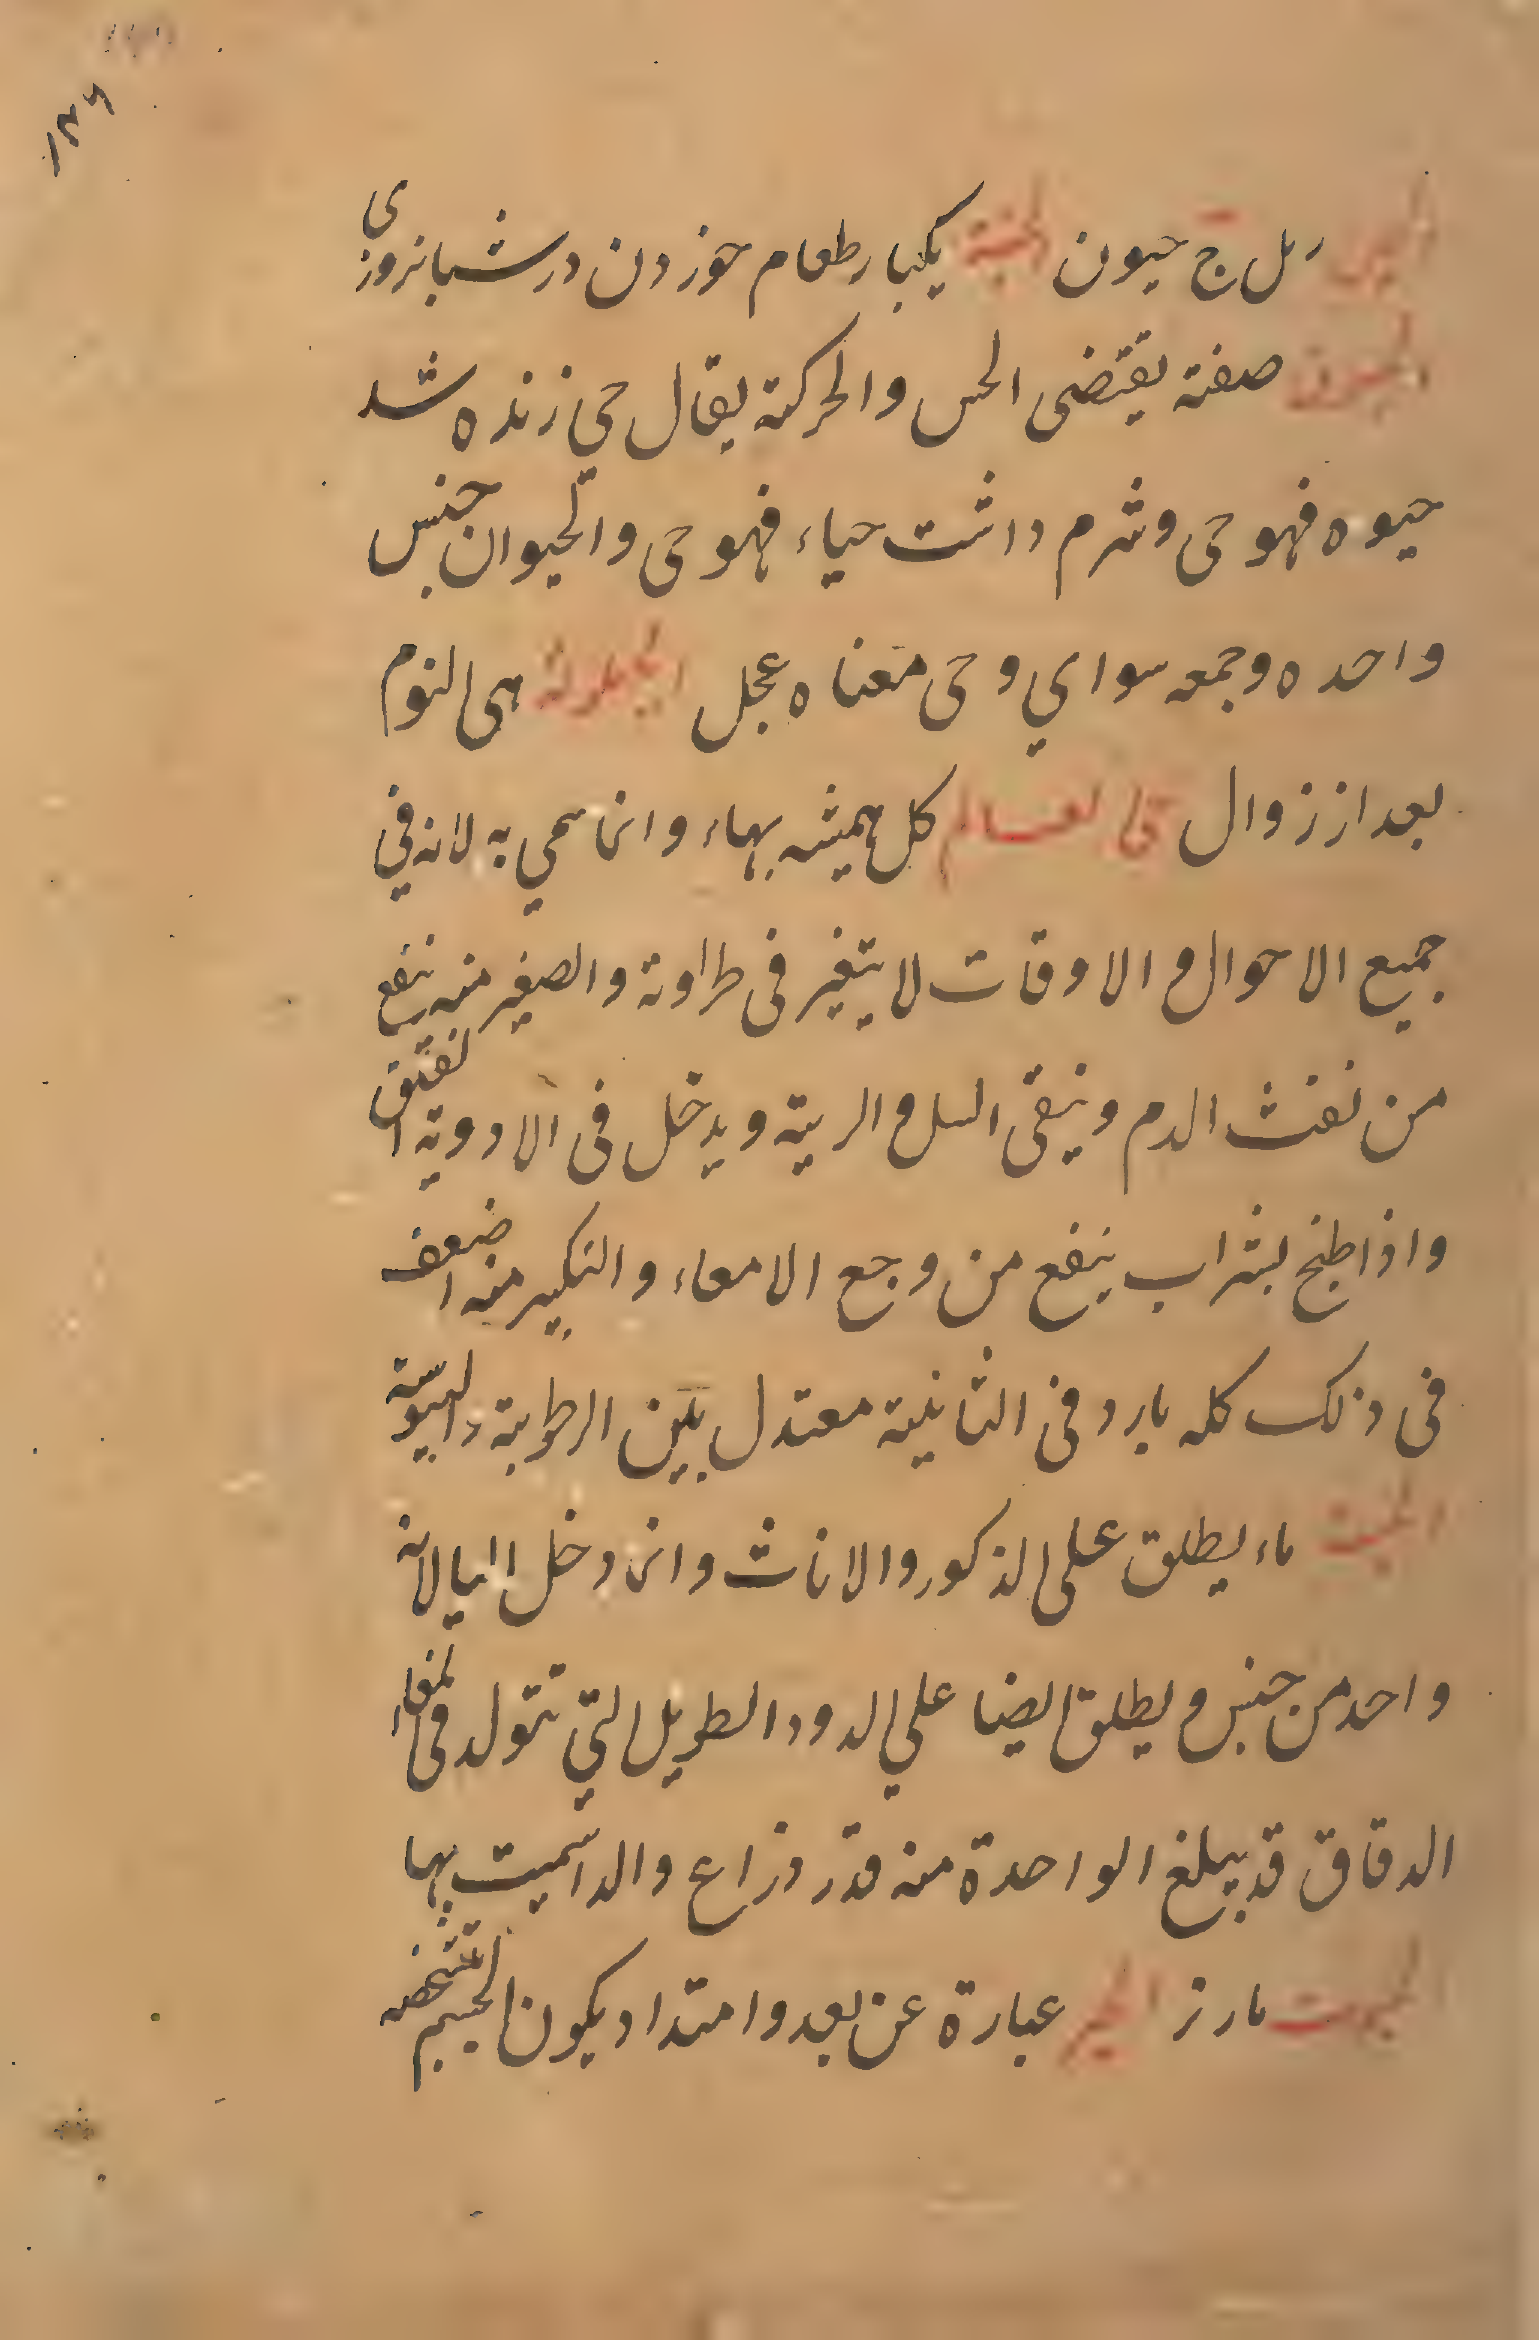 ۱۳۶
الحین ریل ج حیون الحینة یکبار طعام خوردن در شبانروزی
الحیوة صفته یقتضی الحس والحرکة یقال حي زنده شد
حیوه فهو حی وشرم داشت حیاء فهو حی والحیوان جنس
واحده وجمعه سوای وحی معناه عجل الحیلولة هی النوم
بعد از زوال حی العالم کل همیشه بهاء وانما سمی به لانه فی
جمیع الاحوال و الاوقات لا یتغیر فی طراوته والصغیر منه ینفع
من نفث الدم وینقی السل و الریة ویدخل فی الادویة الفتق
واذا طبخ بشراب ینفع من وجع الامعاء والکبیر منه اضعف
فی ذلک کله بارد فی الثانیة معتدل بین الرطوبة والیبوسة
الحیة ماء یطلق علی الذکور والاناث وانما دخل الیا لانه
واحد من جنس و یطلق ایضا علی الدود الطویل التی تتولد فی المعاء
الدقاق قد یبلغ الواحدة منه قدر ذراع والد اسمیت بها
الحیوت مارنر الحیز عبارة عن بعد وامتداد یکون الجسم